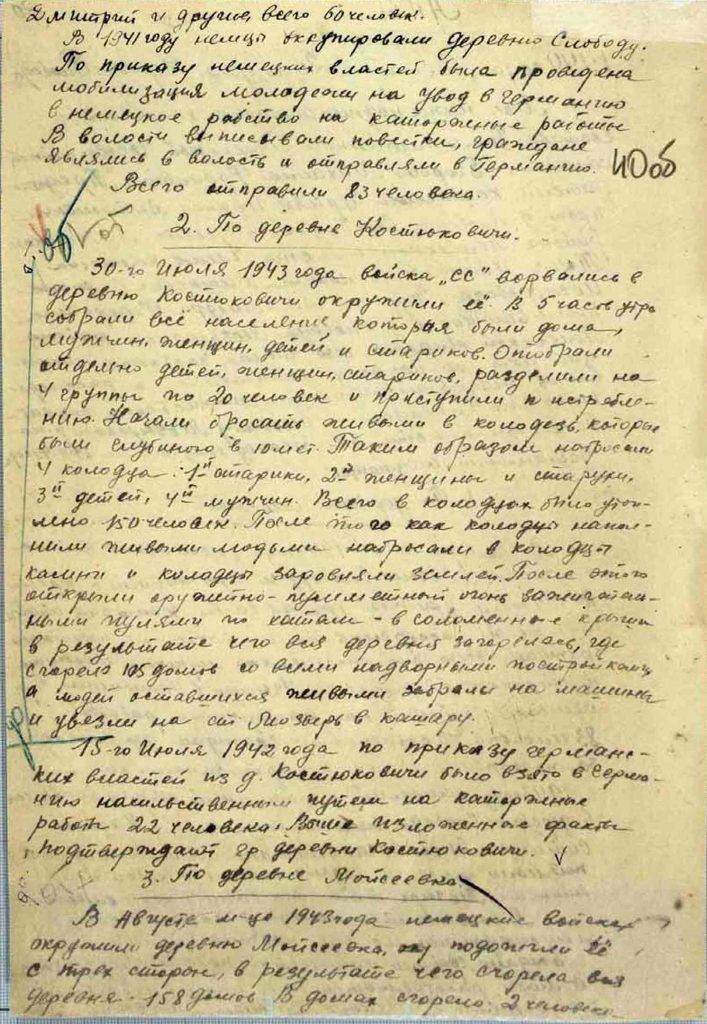 Дмитрий и другие, всего 60 человек.
В 1941 году немцы окупировали деревню Слободу.
По приказу немецких властей была проведена
мобилизация молодежи на увод в Германию
в немецкое рабство на каторжные работы
В волости выписывали повестки, граждане
являлись в волость и отправляли в Германию.
40 об
Всего отправили 83 человека.
об
2. По деревне Костюковичи.
30-го Июля 1943 года войска „СС" ворвались в
деревню Костюковичи окружили её. В 5 часов утра
собрали всё население которая были дома,
мужчин, женщин, детей и стариков. Отобрали
отдельно детей, женщин, стариков, разделили на
4 группы по 20 человек и приступили к истребле-
нию. Начали бросать живыми в колодезь, которые
были глубиною в 10 мет. Таким образом набросали
4 колодца: 1й старики, 2й женщины и старухи,
3й детей, 4й мужчин. Всего в колодцах было утоп-
лено 150 человек. После того как колодцы напол-
нили живыми людьми набросали в колодцы
камни и колодцы заровняли землей. После этого
открыли оружейно-пулеметный огонь зажигатель-
ными пулями по хатам - в соломенные крыши
в результате чего вся деревня загорелась, где
сгорело 105 домов со всеми надворными постройками
а людей оставшихся живыми забрали на машины
и увезли на ст. Мозырь в
15-го Июля 1942 года по приказу германс-
ких властей из д. Костюковичи было взято в Герма-
нию насильственным путем на каторжные
работы 22 человека. Выше изложенные факты
подтверждают гр. деревни Костюковичи.
3. По деревне Мойсеевка
В Августе м-це 1943 года немецкие войска
окружили деревню Мойсеевка, подожгли её
с трех сторон, в результате чего сгорела вся
деревня - 158 домов. В домах сгорело: 2 человека